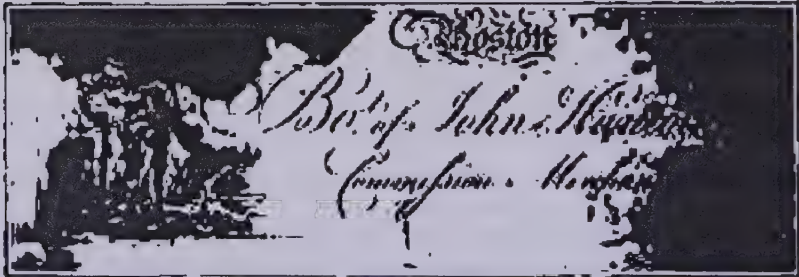 Boston
Bot. of John
Commission Merchan